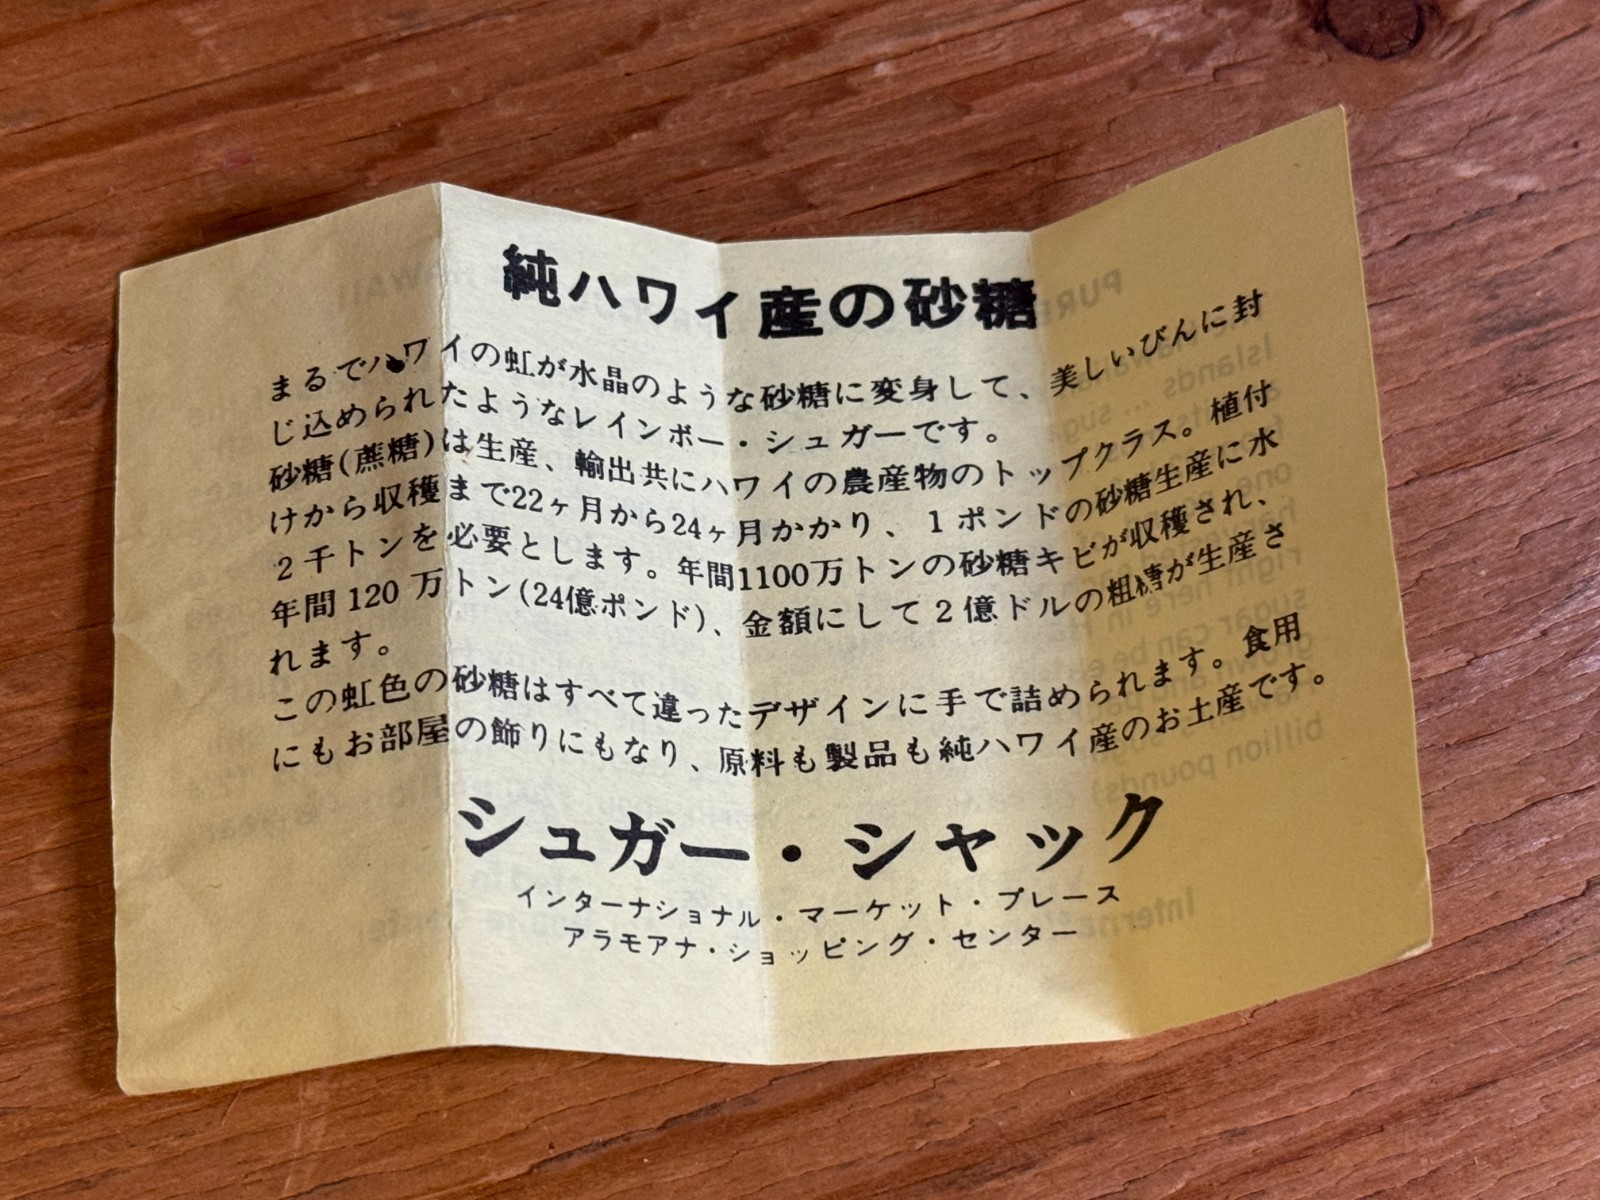 純ハワイ産の砂糖
まるでハワイの虹が水晶のような砂糖に変身して、美しいびんに封
じ込められたようなレインボー・シュガーです。
砂糖(蔗糖)は生産、輸出共にハワイの農産物のトップクラス。植付
けから収穫まで22ヶ月から24ヶ月かかり、1ポンドの砂糖生産に水
2千トンを必要とします。年間1100万トンの砂糖キビが収穫され、
年間120万トン(24億ポンド)、金額にして2億ドルの粗糖が生産さ
れます。
この虹色の砂糖はすべて違ったデザインに手で詰められます。食用
にもお部屋の飾りにもなり、原料も製品も純ハワイ産のお土産です。
シュガー・シャック
インターナショナル・マーケット・プレース
アラモアナ・ショッピング・センター